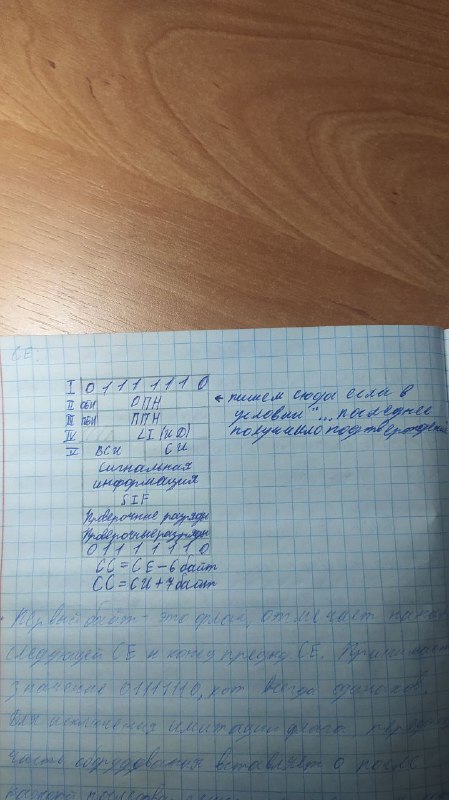 СЕ.
I 0 1 1 1 1 1 1 0
II ОБИ ОПН ← пишем сюда если в
III ПБИ ППН условии "... последнее
IV LI (ИД) получило подтверждение
V ВСИ СИ
Сигнальная
информация
SIF
Проверочные разряды
Проверочные разряды
0 1 1 1 1 1 1 0
СС = СЕ - 6 байт
СС = СИ + 4 байт
Первый байт - это флаг, отмечает начало
следующей СЕ и конец пред. СЕ. Принимает
значение 01111110, кот всегда одинаков.
Для исключения имитации флага
часть оборудования вставляет 0 после